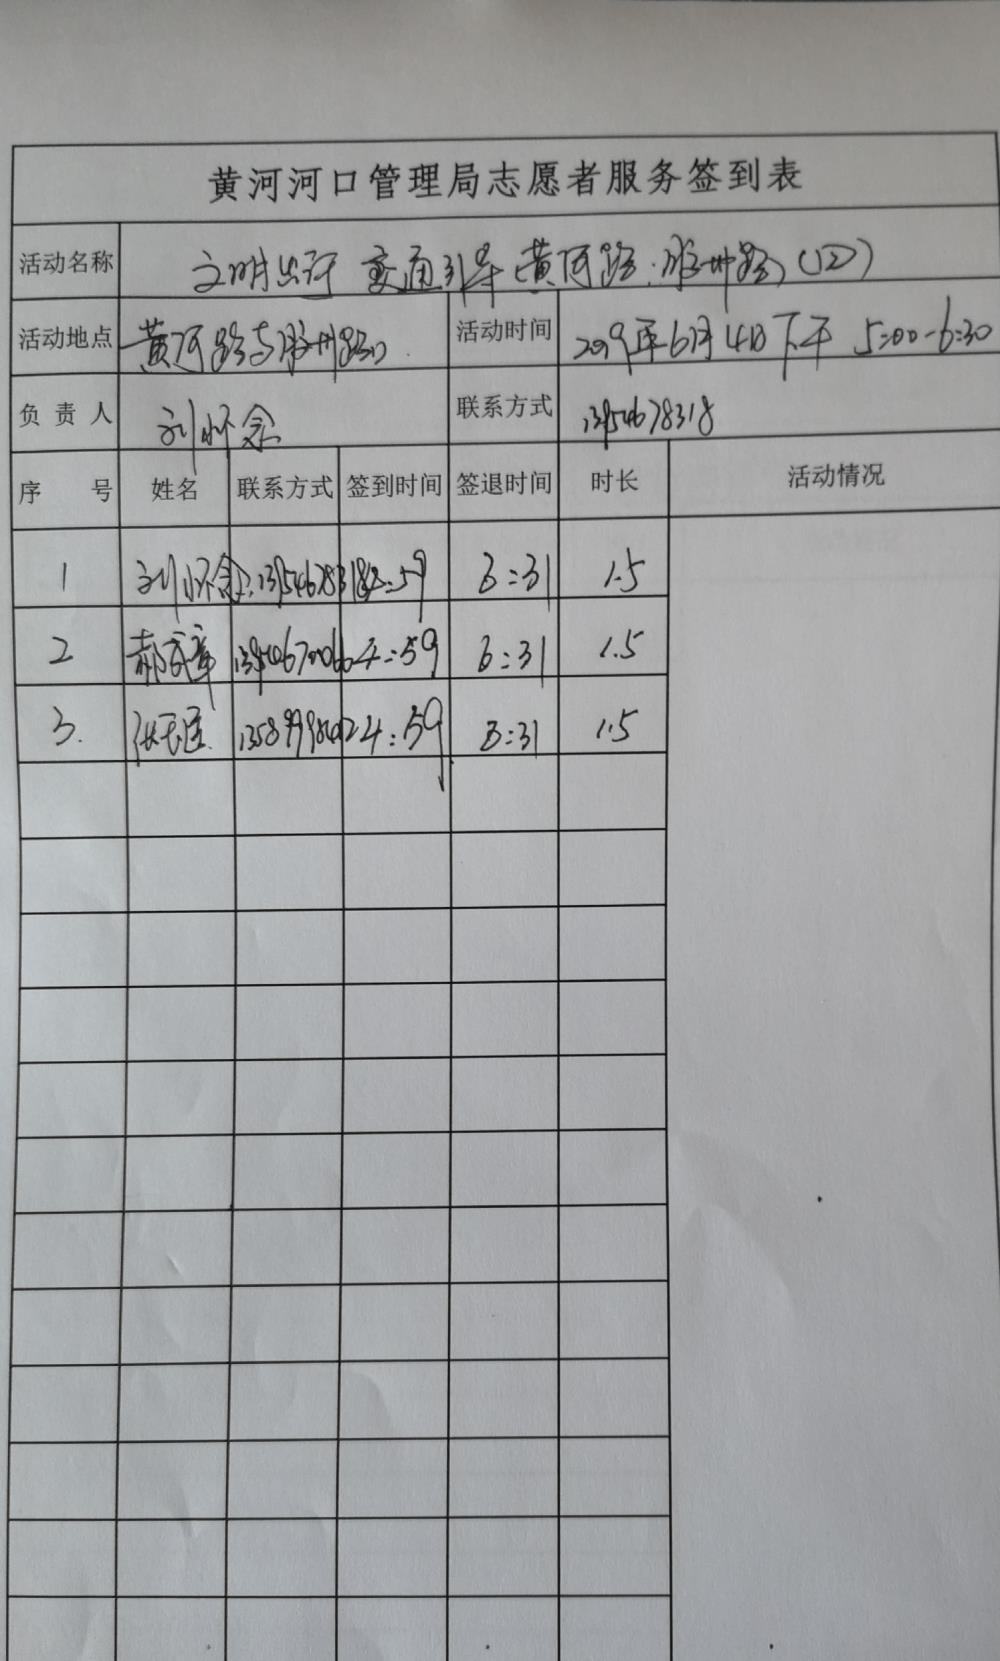 黄河河口管理局志愿者服务签到表
活动名称 文明出行 交通引导(黄河路·胶州路)(四)
活动地点 黄河路与胶州路口 活动时间 2019年6月4日下午 5:00-6:30
负责人 刘怀念 联系方式 13954678318
序号 姓名 联系方式 签到时间 签退时间 时长 活动情况
1 刘怀念 13954678318 4:59 6:31 1.5
2 4:59 6:31 1.5
3. 4:59 6:31 1.5